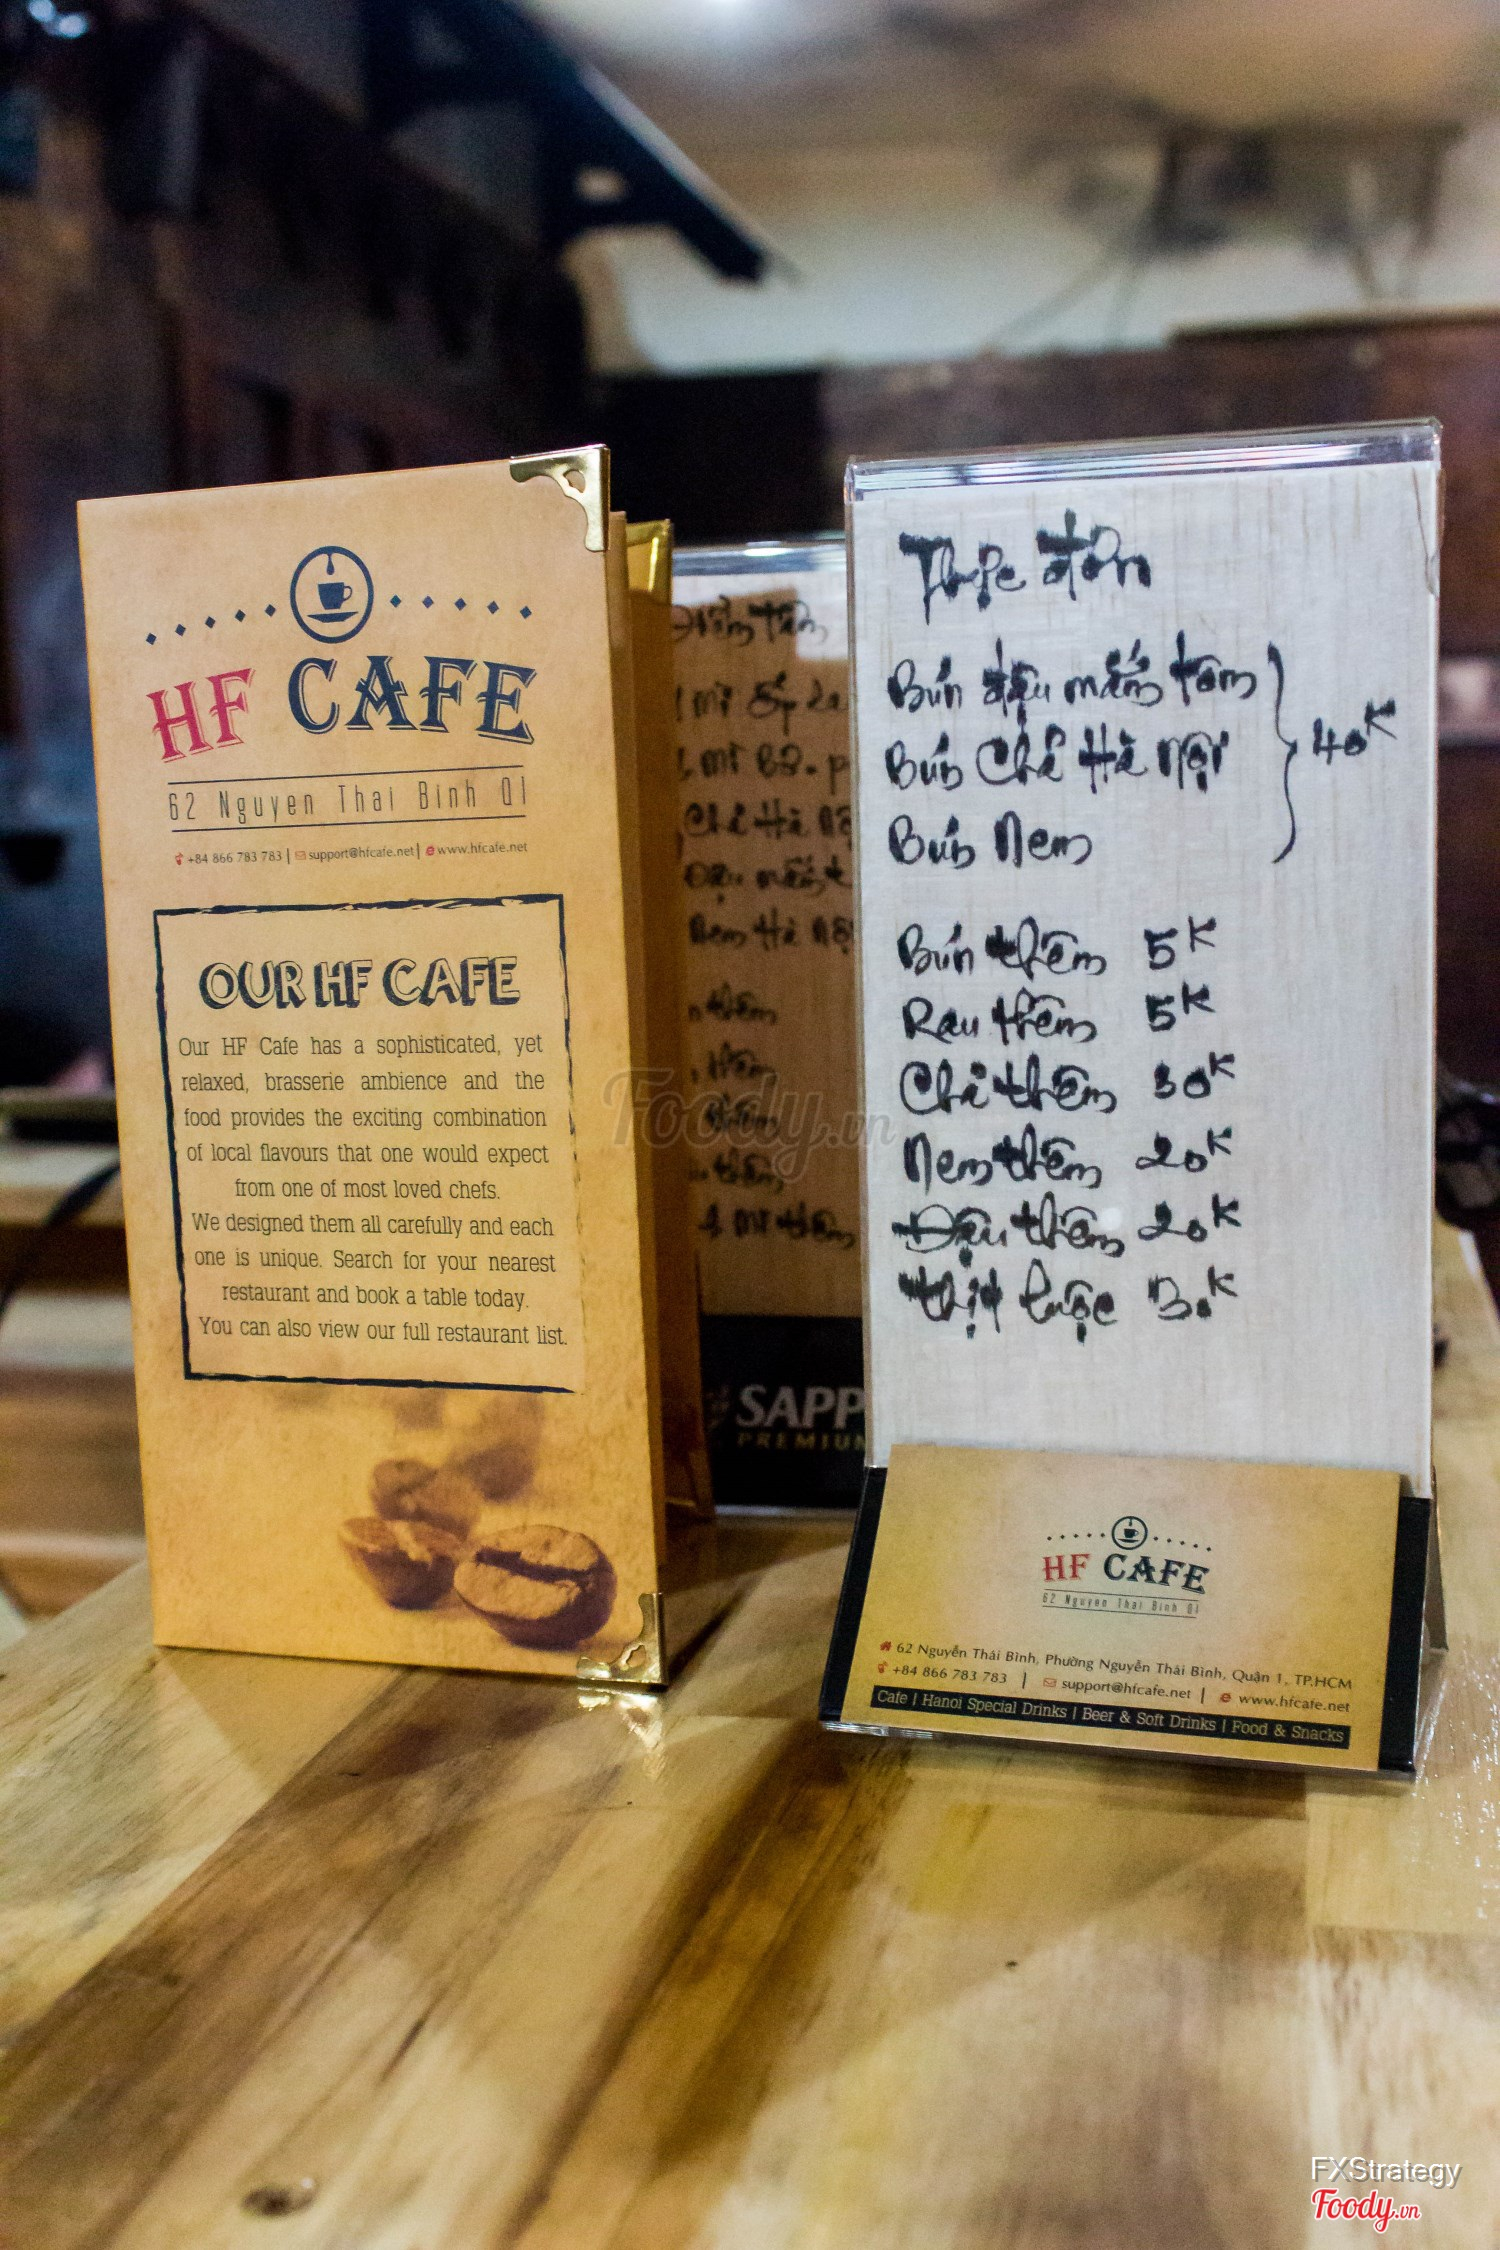 HF CAFE
62 Nguyen Thai Binh Q1
+84 866 783 783 | support@hfcafe.net | www.hfcafe.net
OUR HF CAFE
Our HF Cafe has a sophisticated, yet
relaxed, brasserie ambience and the
food provides the exciting combination
of local flavours that one would expect
from one of most loved chefs.
We designed them all carefully and each
one is unique. Search for your nearest
restaurant and book a table today.
You can also view our full restaurant list.
Điểm tâm
mì ốp la
mì bò
Chả Hà
Đậu mắm
Nem Hà Nội
thêm
thêm
thêm
thêm
mì thêm
SAPP
PREMIUM
Thực đơn
Bún đậu mắm tôm
Bún Chả Hà Nội
Bún Nem
40K
Bún thêm 5K
Rau thêm 5K
Chả thêm 30K
Nem thêm 20K
Đậu thêm 20K
Thịt luộc 30K
HF CAFE
62 Nguyen Thai Binh Q1
62 Nguyễn Thái Bình, Phường Nguyễn Thái Bình, Quận 1, TP.HCM
+84 866 783 783 | support@hfcafe.net | www.hfcafe.net
Cafe | Hanoi Special Drinks | Beer & Soft Drinks | Food & Snacks
Foody.vn
FXStrategy
Foody.vn